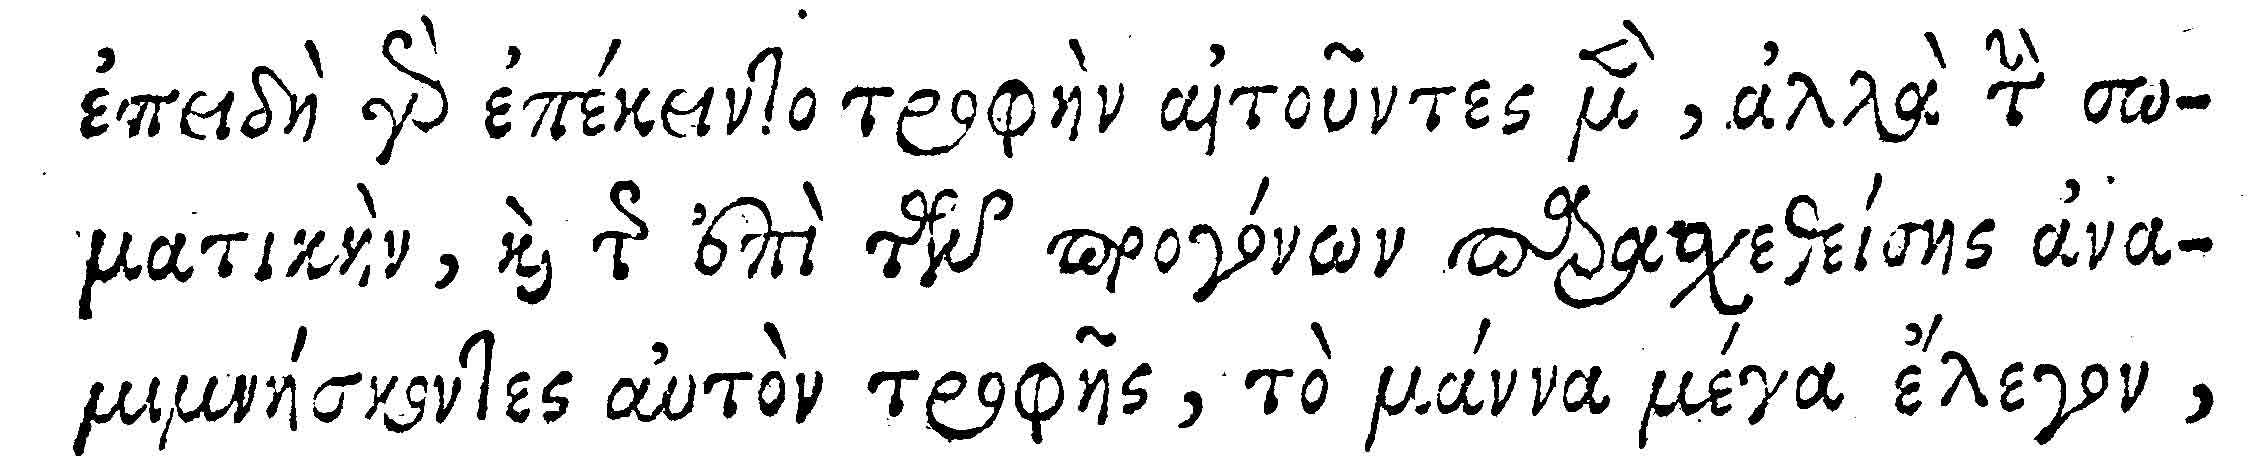 ἐπειδὴ γὰρ ἐπέκειντο τροφὴν αἰτοῦντες μὲν, ἀλλὰ τὴν σω-
ματικὴν, καὶ τῆς ἐπὶ τῶν προγόνων παρασχεθείσης ἀνα-
μιμνήσκοντες αὐτὸν τροφῆς, τὸ μάννα μέγα ἔλεγον,